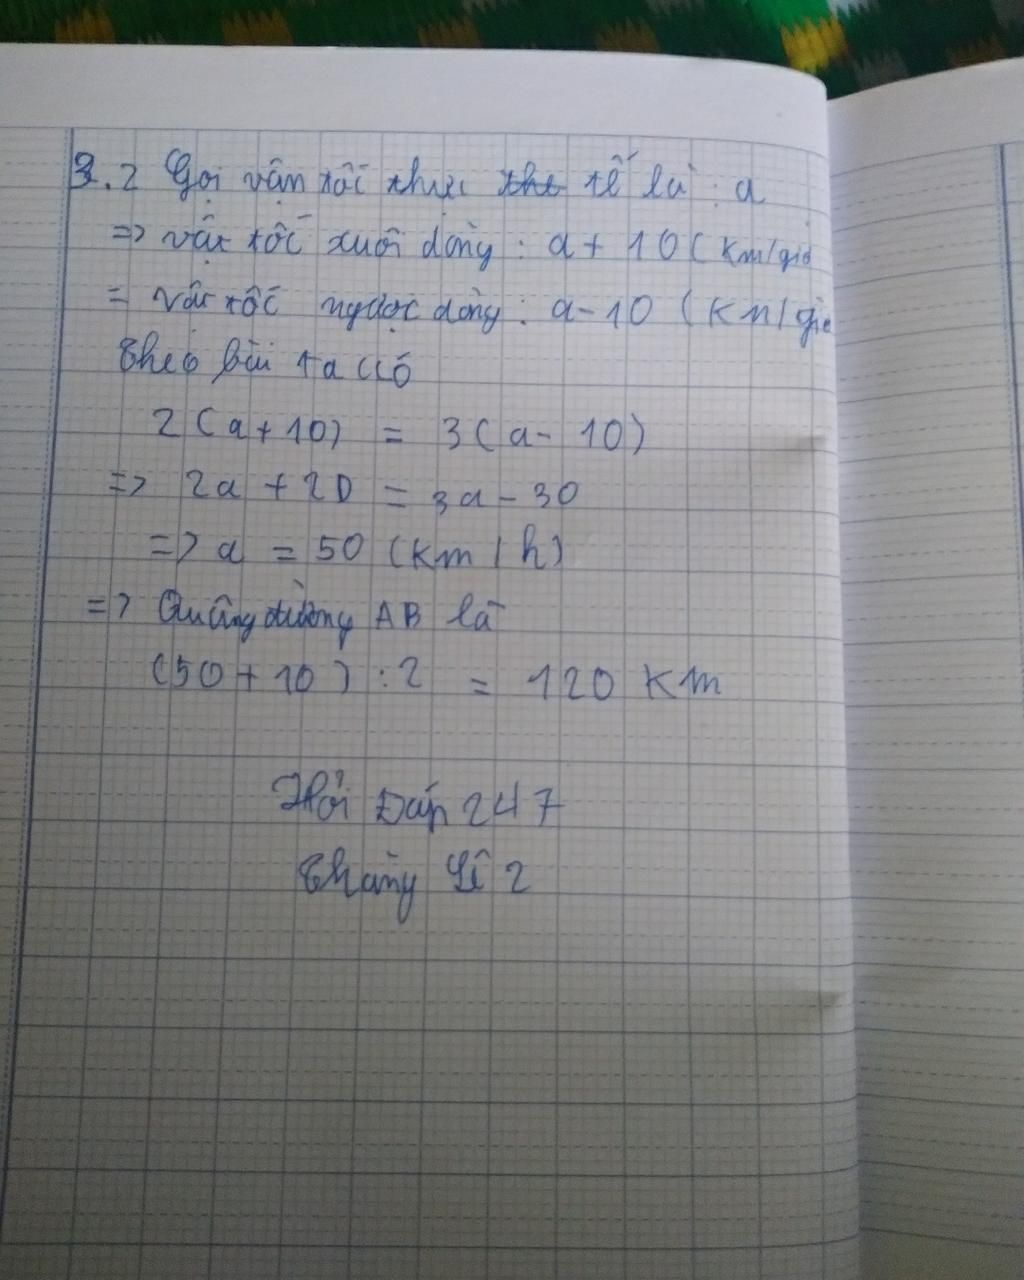 3.2 Gọi vận tốc thực tế là : a
=> vận tốc xuôi dòng : a + 10 ( km/giờ
= vận tốc ngược dòng : a - 10 ( km/giờ
Theo bài ta có
2 ( a + 10 ) = 3 ( a - 10 )
=> 2a + 20 = 3a - 30
=> a = 50 ( km / h )
=> Quãng đường AB là
( 50 + 10 ) : 2 = 120 km
Hỏi Đáp 247